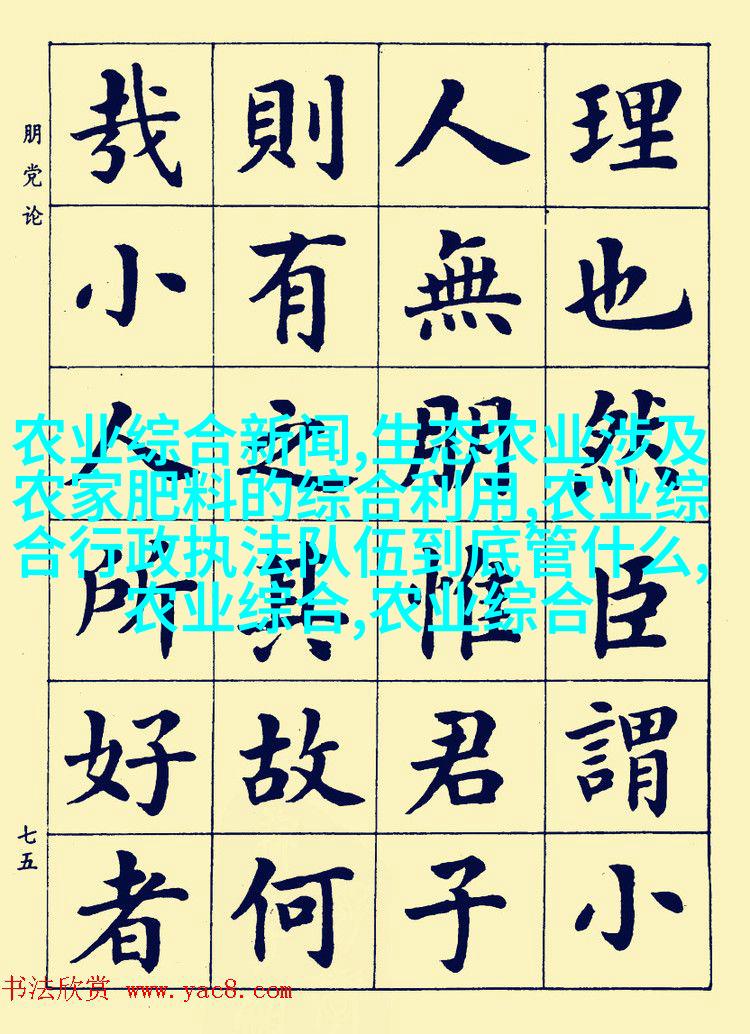 理也然臣謂小
人無朋惟君子
則有之其故何
哉小人所好者
朋党论
七五
农业综合新闻,生态农业涉及
农家肥料的综合利用,农业综
合行政执法队伍到底管什么,
农业综合,农业综合
书法欣赏 www.yac8.com